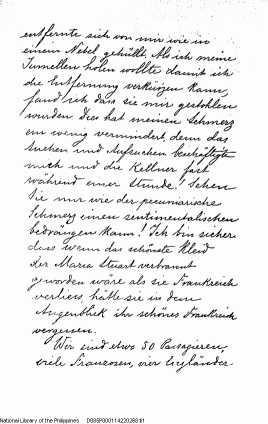 entfernte sich von mir wie in
einem Nebel gehüllt. Als ich meine
Tumellen holen wollte damit ich
die Entfernung verkürzen kann,
fand ich dass sie mir gestohlen
wurden. Dies hat meinen Schmerz
ein wenig vermindert, denn das
Suchen und Aufsuchen beschäftigte
mich und die Kellner fast
während einer Stunde! Sehen
Sie nur wie der pecuniarische
Schmerz einen sentimentalischen
bedrängen kann! Ich bin sicher
dass wenn das schönste Kleid
der Maria Stuart verbrannt
geworden wäre als sie Frankreich
verliess, hätte sie in dem
Augenblick ihr schönes Frankreich
vergessen.
Wir sind etwa 50 Passagieren,
viele Franzosen, vier Engländer
National Library of the Philippines